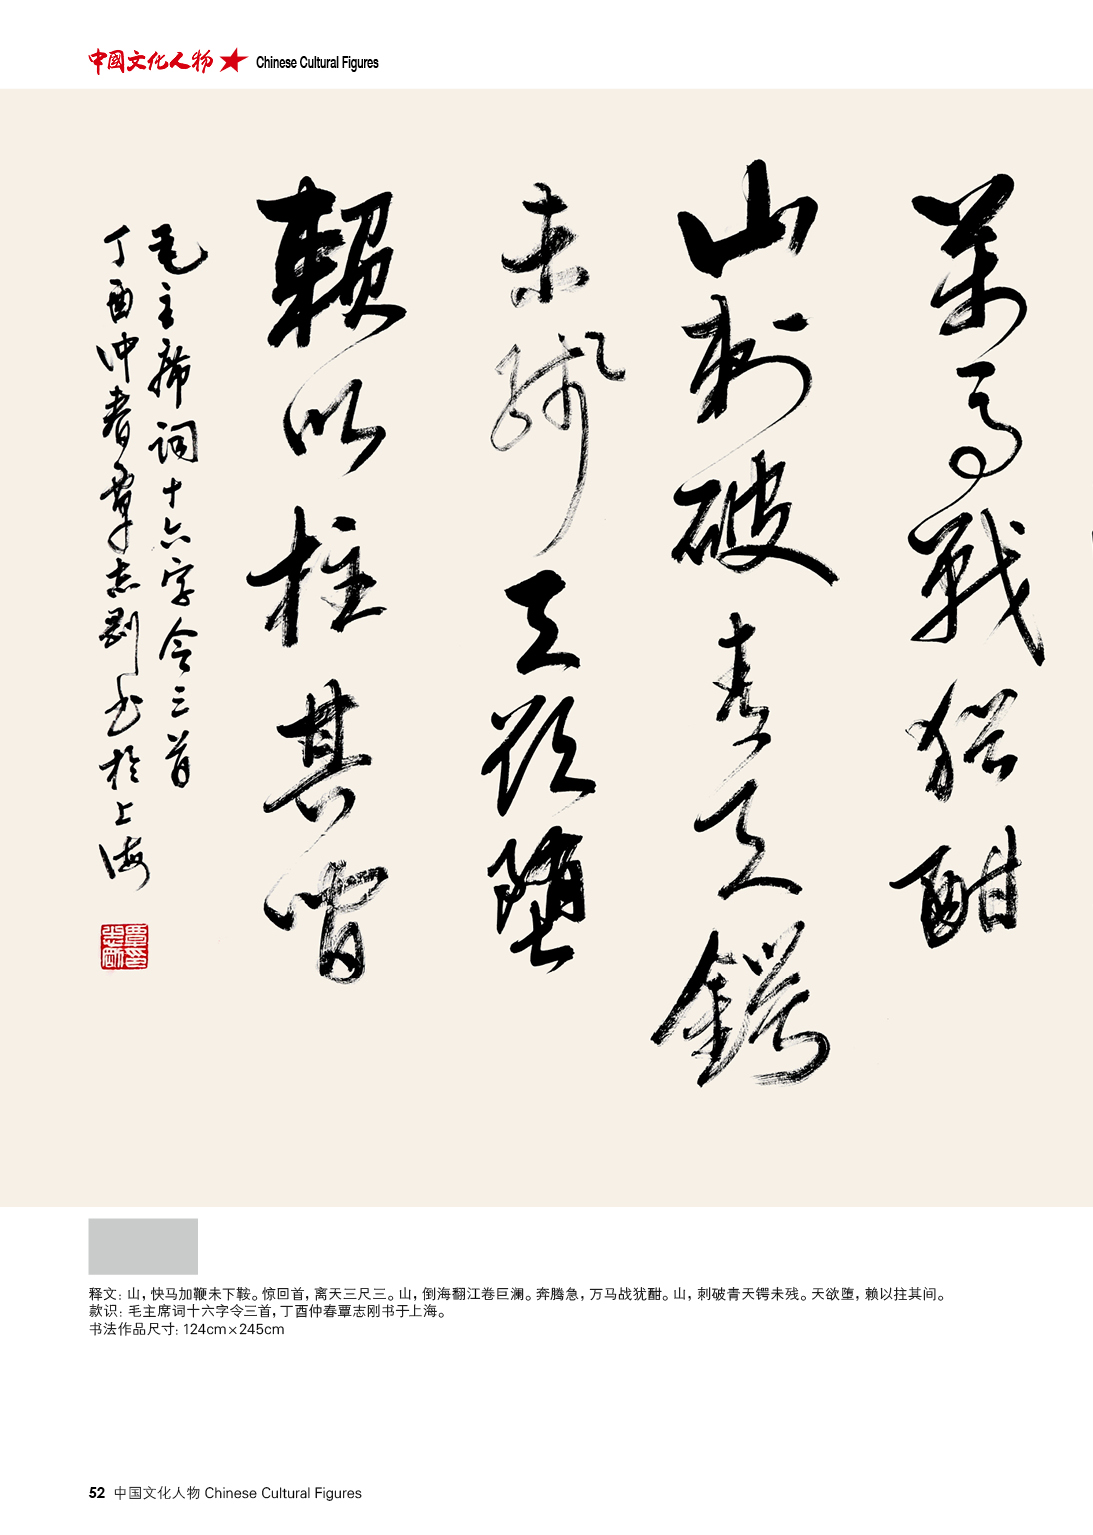 中國文化人物 Chinese Cultural Figures
萬馬戰猶酣
山刺破青天鍔
未殘天欲墮
賴以柱其間
毛主席词十六字令三首
丁酉仲春覃志剛书於上海
释文: 山, 快马加鞭未下鞍。惊回首, 离天三尺三。山, 倒海翻江卷巨澜。奔腾急, 万马战犹酣。山, 刺破青天锷未残。天欲堕, 赖以拄其间。
款识: 毛主席词十六字令三首, 丁酉仲春覃志刚书于上海。
书法作品尺寸: 124cm×245cm
52 中国文化人物 Chinese Cultural Figures